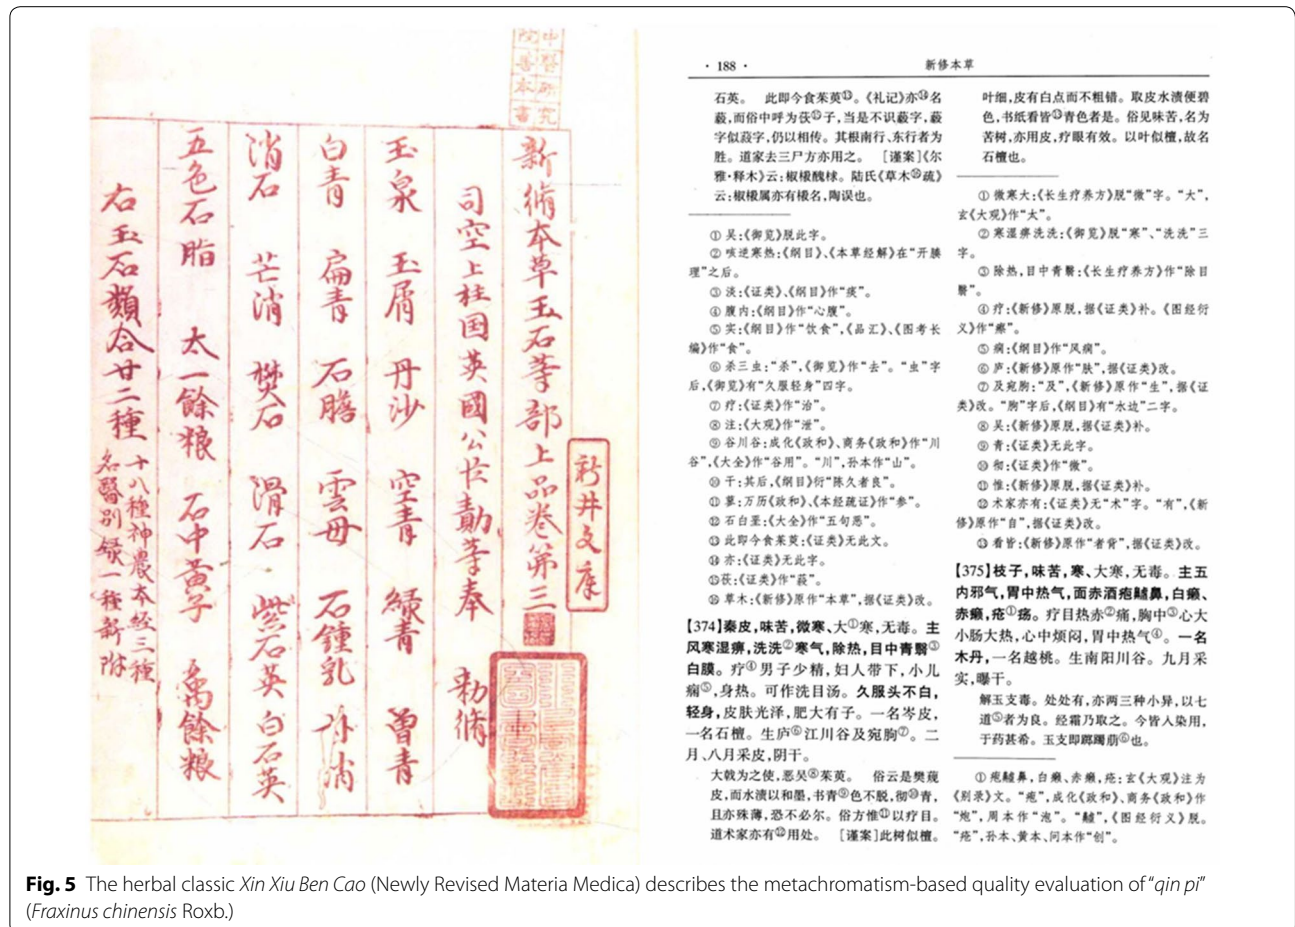 新脩本草玉石等部上品卷第三
司空上柱国英國公臣勣等奉 勅脩
玉泉 玉屑 丹沙 空青 緑青 曾青
白青 扁青 石膽 雲母 石鍾乳 朴消
消石 芒消 樊石 滑石 紫石英 白石英
五色石脂 太一餘粮 石中黃子 禹餘粮
右玉石類合廿二種
十八種神農本經三種
名醫別録一種新附
新井文庫
中醫研究
院善本書
· 188 ·
新修本草
石英。 此即今食茱萸⑬。《礼记》亦⑭名
藙,而俗中呼为䓋⑮子,当是不识藙字,藙
字似䓋字,仍以相传。其根南行、东行者为
胜。道家去三尸方亦用之。 [谨案]《尔
雅·释木》云:椒樧醜梂。陆氏《草木⑯疏》
云:椒樧属亦有樧名,陶误也。
① 吴:《御览》脱此字。
② 咳逆寒热:《纲目》、《本草经解》在“开腠
理”之后。
③ 淡:《证类》、《纲目》作“痰”。
④ 腹内:《纲目》作“心腹”。
⑤ 实:《纲目》作“饮食”,《品汇》、《图考长
编》作“食”。
⑥ 杀三虫:“杀”,《御览》作“去”。“虫”字
后,《御览》有“久服轻身”四字。
⑦ 疗:《证类》作“治”。
⑧ 注:《大观》作“泄”。
⑨ 谷川谷:成化《政和》、商务《政和》作“川
谷”,《大全》作“谷用”。“川”,孙本作“山”。
⑩ 干:其后,《纲目》衍“陈久者良”。
⑪ 蓼:万历《政和》、《本经疏证》作“参”。
⑫ 石白垩:《大全》作“五句恶”。
⑬ 此即今食茱萸:《证类》无此文。
⑭ 亦:《证类》无此字。
⑮ 茯:《证类》作“蔱”。
⑯ 草木:《新修》原作“本草”,据《证类》改。
【374】秦皮,味苦,微寒、大①寒,无毒。主
风寒湿痹,洗洗②寒气,除热,目中青翳③
白膜。疗④男子少精,妇人带下,小儿
痫⑤,身热。可作洗目汤。久服头不白,
轻身,皮肤光泽,肥大有子。一名岑皮,
一名石檀。生庐⑥江川谷及宛朐⑦。二
月、八月采皮,阴干。
大戟为之使,恶吴⑧茱萸。 俗云是樊槻
皮,而水渍以和墨,书青⑨色不脱,彻⑩青,
且亦殊薄,恐不必尔。俗方惟⑪以疗目。
道术家亦有⑫用处。 [谨案]此树似檀。
叶细,皮有白点而不粗错。取皮水渍便碧
色,书纸看皆⑬青色者是。俗见味苦,名为
苦树,亦用皮,疗眼有效。以叶似檀,故名
石檀也。
① 微寒大:《长生疗养方》脱“微”字。“大”,
玄《大观》作“太”。
② 寒湿痹洗洗:《御览》脱“寒”、“洗洗”三
字。
③ 除热,目中青翳:《长生疗养方》作“除目
翳”。
④ 疗:《新修》原脱,据《证类》补。《图经衍
义》作“瘵”。
⑤ 痫:《纲目》作“风痫”。
⑥ 庐:《新修》原作“肤”,据《证类》改。
⑦ 及宛朐:“及”,《新修》原作“生”,据《证
类》改。“朐”字后,《纲目》有“水边”二字。
⑧ 吴:《新修》原脱,据《证类》补。
⑨ 青:《证类》无此字。
⑩ 彻:《证类》作“微”。
⑪ 惟:《新修》原脱,据《证类》补。
⑫ 术家亦有:《证类》无“术”字。“有”,《新
修》原作“自”,据《证类》改。
⑬ 看皆:《新修》原作“者背”,据《证类》改。
【375】枝子,味苦,寒、大寒,无毒。主五
内邪气,胃中热气,面赤酒疱皶鼻,白癞、
赤癞,疮①疡。疗目热赤②痛,胸中③心大
小肠大热,心中烦闷,胃中热气④。一名
木丹,一名越桃。生南阳川谷。九月采
实,曝干。
解玉支毒。处处有,亦两三种小异,以七
道⑤者为良。经霜乃取之。今皆入染用,
于药甚希。玉支即踯躅萠⑥也。
① 疱皶鼻,白癞、赤癞,疮:玄《大观》注为
《别录》文。“疱”,成化《政和》、商务《政和》作
“炮”,周本作“泡”。“皶”,《图经衍义》脱。
“疮”,孙本、黄本、问本作“创”。
Fig. 5 The herbal classic Xin Xiu Ben Cao (Newly Revised Materia Medica) describes the metachromatism-based quality evaluation of “qin pi”
(Fraxinus chinensis Roxb.)